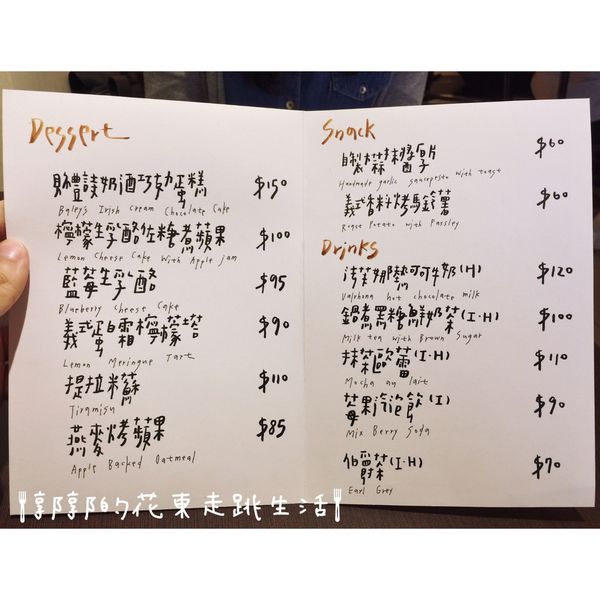 Dessert
$150
Baleys Irish Cream Chocolate Cake
檸檬生乳酪佐糖煮蘋果 $100
Lemon Cheese Cake with Apple jam
藍莓生乳酪 $95
Blueberry Cheese Cake
義式蛋霜檸檬塔 $90
Lemon Meringue Tart
提拉米蘇 $110
Tiramisu
燕麥烤蘋果 $85
Apple Backed Oatmeal
Snack
自製蒜抹醬厚片 $60
Handmade garlic saucepesto with toast
義式香料烤馬鈴薯 $60
Roast Potato with Parsley
Drinks
法芙娜熱可可牛奶(H) $120
Valrhona hot chocolate milk
鍋煮黑糖鮮奶茶(I·H) $100
Milk tea with Brown Sugar
抹茶歐蕾(I·H) $110
Mocha au lait
莓果氣泡飲(I) $90
Mix Berry Soda
伯爵茶(I·H) $70
Earl Grey
惇惇的花東走跳生活